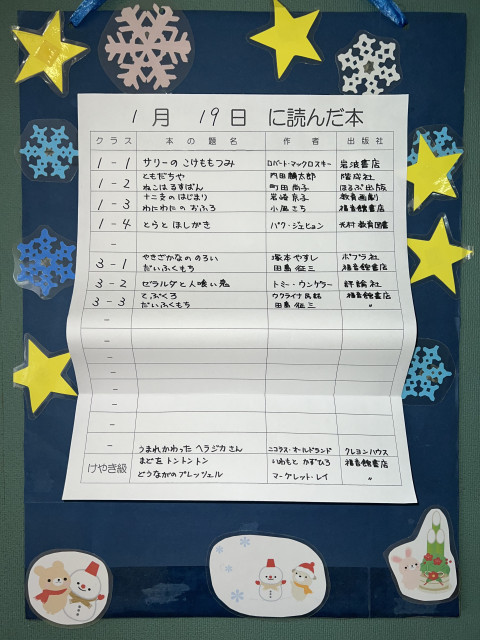 1月 19日 に読んだ本
クラス 本の題名 作者 出版社
1-1 サリーのこけももつみ ロバート・マックロスキー 岩波書店
ともだちや 内田麟太郎 偕成社
1-2 ねこはるすばん 町田尚子 ほるぷ出版
十二支のはじまり 岩崎京子 教育画劇
1-3 わにわにのおふろ 小風さち 福音館書店
1-4 とらとほしがき パク・ジェヒョン 光村教育図書
-
3-1 やきざかなののろい 塚本やすし ポプラ社
だいふくもち 田島征三 福音館書店
3-2 ゼラルダと人喰い鬼 トミー・ウンゲラー 評論社
3-3 てぶくろ ウクライナ民話 福音館書店
だいふくもち 田島征三 〃
-
-
-
-
-
-
-
うまれかわったヘラジカさん ニコラス・オールドランド クレヨンハウス
けやき級 まどをトントントン いわもとかずひろ 福音館書店
どうながのプレッツェル マーグレット・レイ 〃